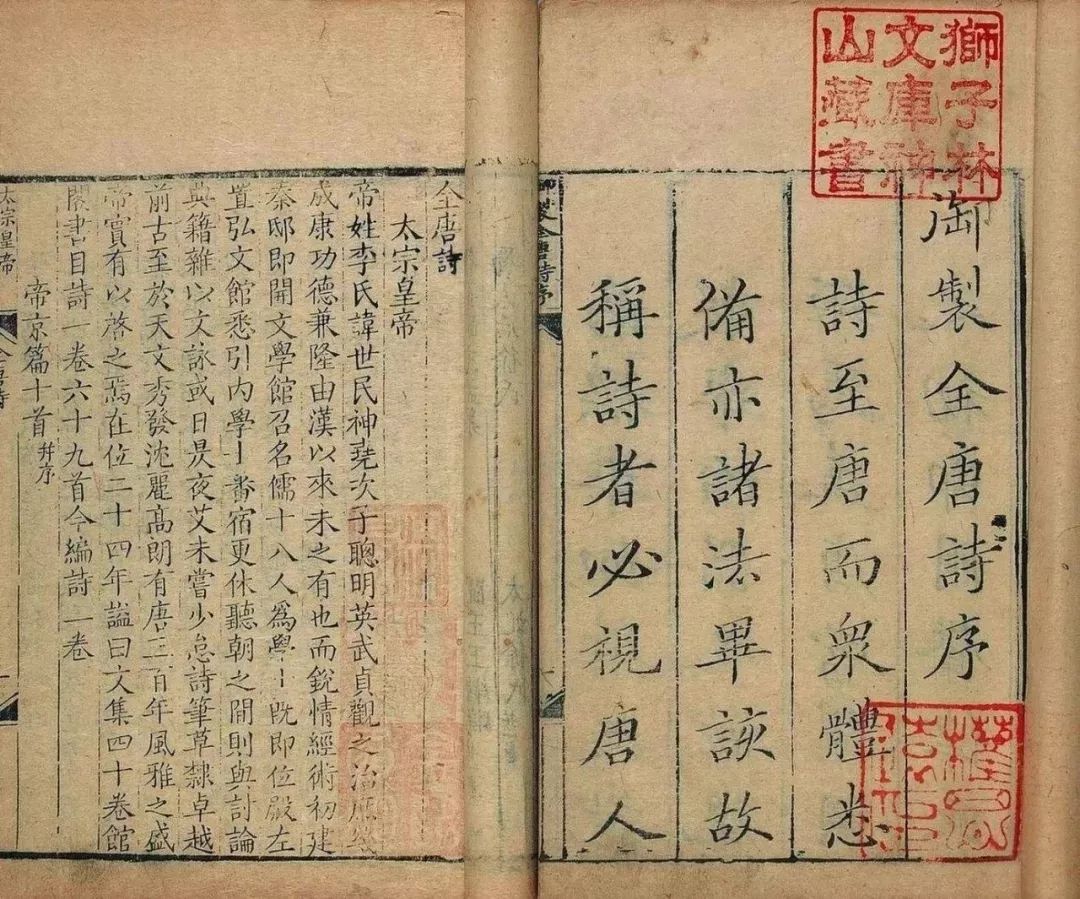 獅子林
文庫神
山藏書
御製全唐詩序
詩至唐而衆體悉
備亦諸法畢該故
稱詩者必視唐人
全唐詩序
全唐詩
太宗皇帝
帝姓李氏諱世民神堯次子聰明英武貞觀之治庶幾
成康功德兼隆由漢以來未之有也而銳情經術初建
秦邸即開文學館召名儒十八人爲學士旣即位殿左
置弘文館悉引內學士番宿更休聽朝之間則與討論
典籍雜以文詠或日昃夜艾未嘗少怠詩筆草隸卓越
前古至於天文秀發沈麗高朗有唐三百年風雅之盛
帝實有以啓之焉在位二十四年諡曰文集四十卷館
閣書目詩一卷六十九首今編詩一卷
帝京篇十首 幷序
太宗皇帝
全唐詩